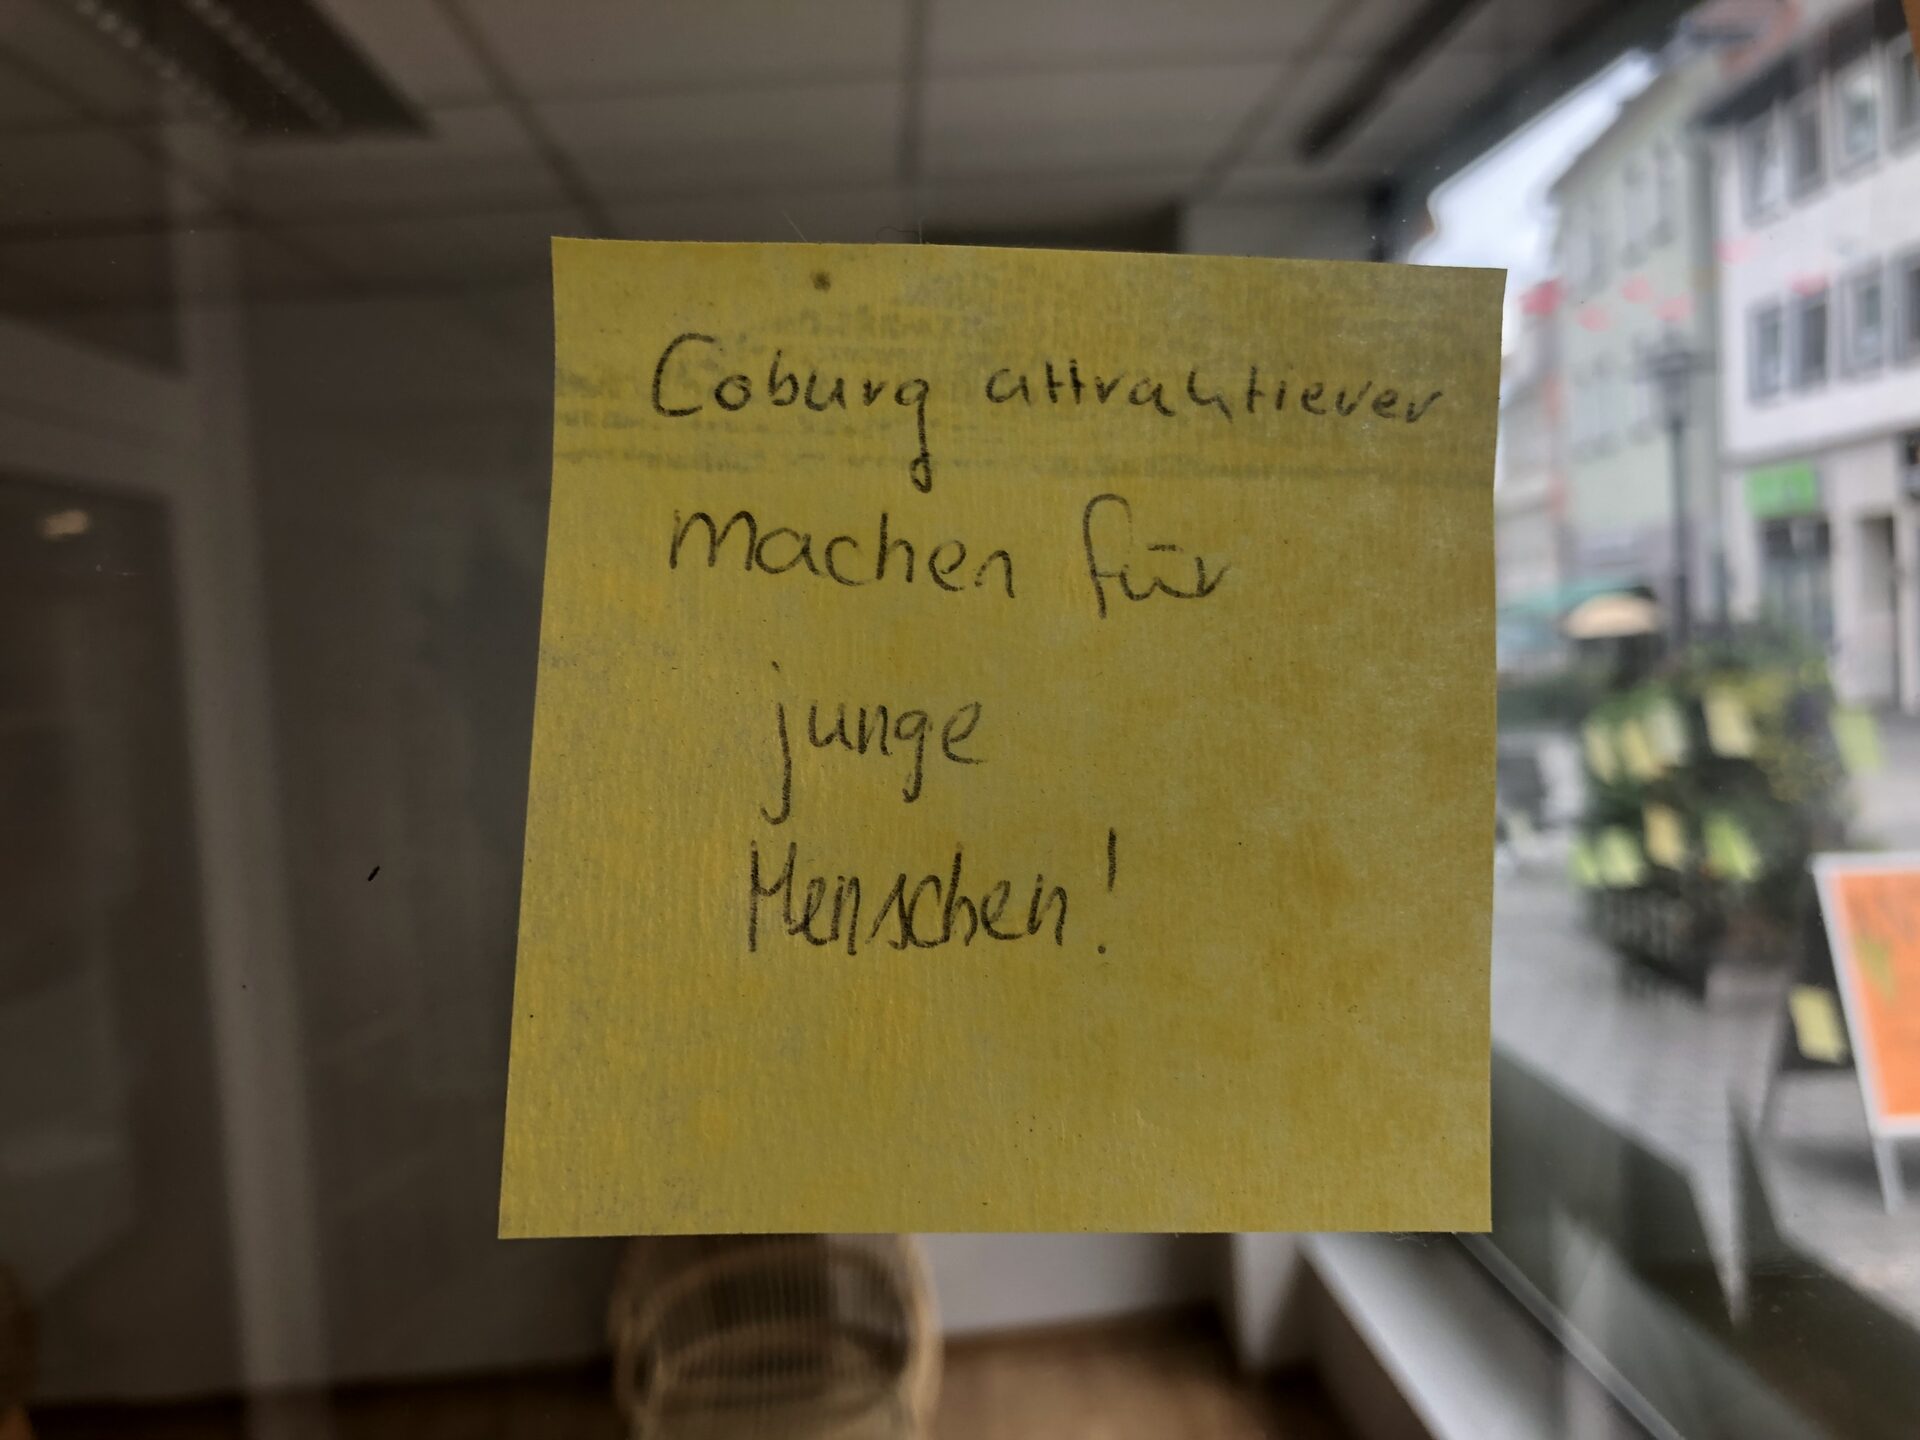 Coburg attraktiever
machen für
junge
Menschen!